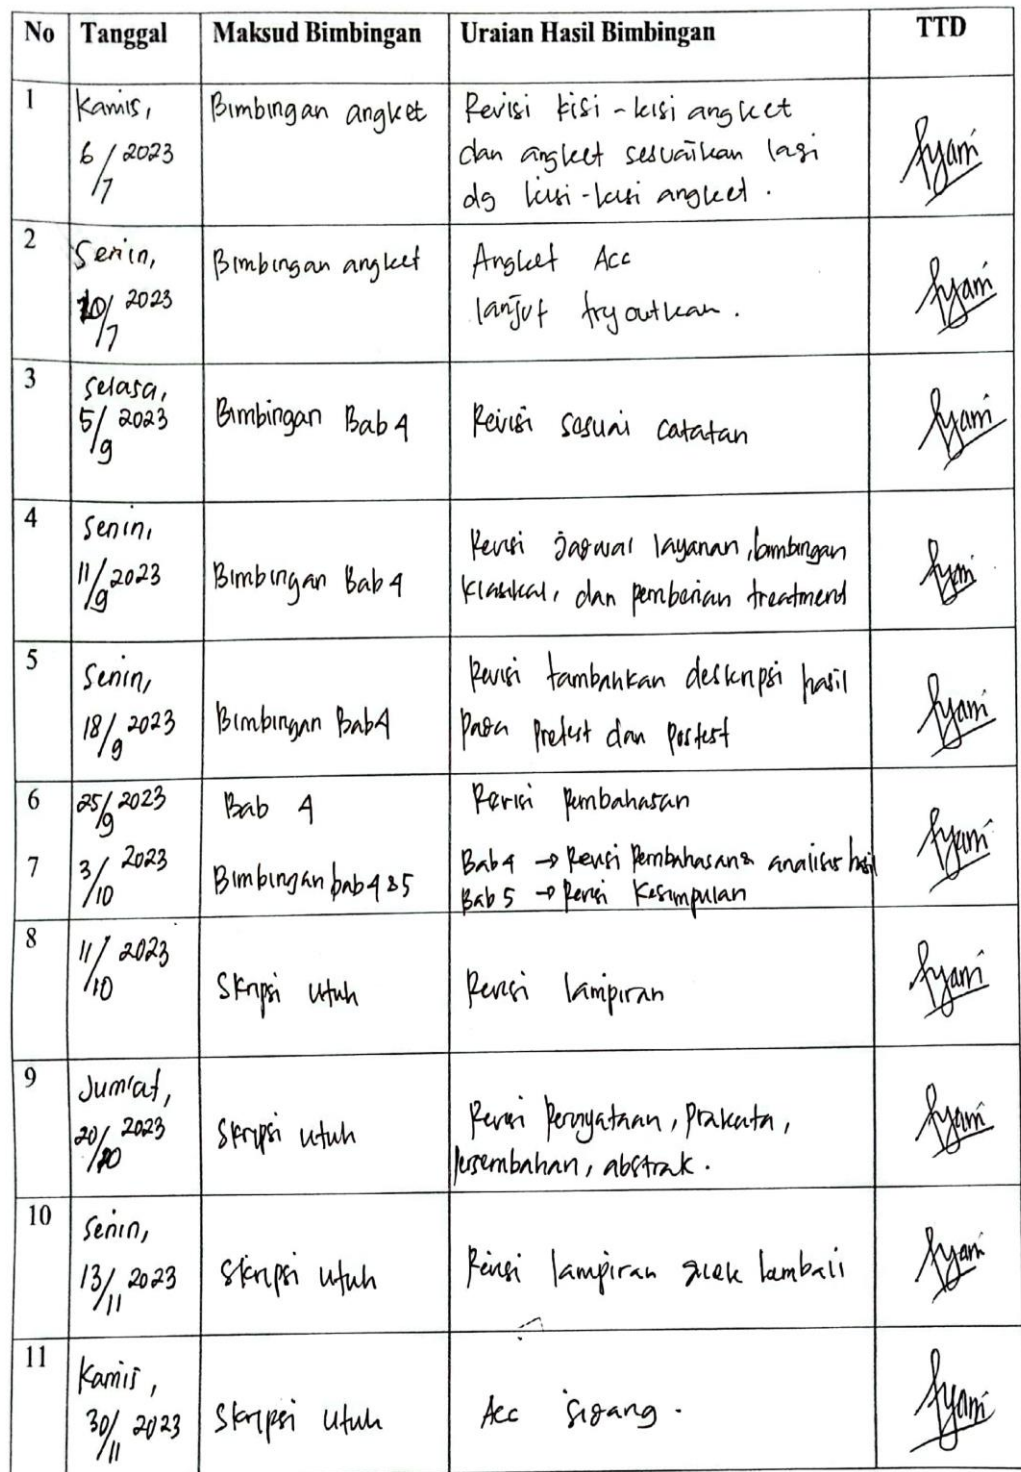 No Tanggal Maksud Bimbingan Uraian Hasil Bimbingan TTD
1 Kamis, Bimbingan angket Revisi kisi-kisi angket
6/7 2023 dan angket sesuaikan lagi
dg kisi-kisi angket.
Ayami
2 Senin, Bimbingan angket Angket Acc
10/7 2023 lanjut tryoutkan.
Ayami
3 Selasa,
5/9 2023 Bimbingan Bab 4 Revisi sesuai catatan
Ayami
4 Senin, Revisi Jadwal layanan, bimbingan
11/9 2023 Bimbingan Bab 4 klasikal, dan pemberian treatment
Ayami
5 Senin, Revisi tambahkan deskripsi hasil
18/9 2023 Bimbingan Bab 4 pada Pretest dan Postest
Ayami
6 25/9 2023 Bab 4 Revisi Pembahasan
7 3/10 2023 Bimbingan bab 4 & 5 Bab 4 → Revisi Pembahasan & analisis hasil
Bab 5 → Revisi Kesimpulan
Ayami
8 11/10 2023 Skripsi utuh Revisi lampiran
Ayami
9 Jum'at,
20/10 2023 Skripsi utuh Revisi Pernyataan, Prakata,
Persembahan, abstrak.
Ayami
10 Senin,
13/11 2023 Skripsi utuh Revisi lampiran
Ayami
11 Kamis,
30/11 2023 Skripsi utuh Acc Sidang.
Ayami